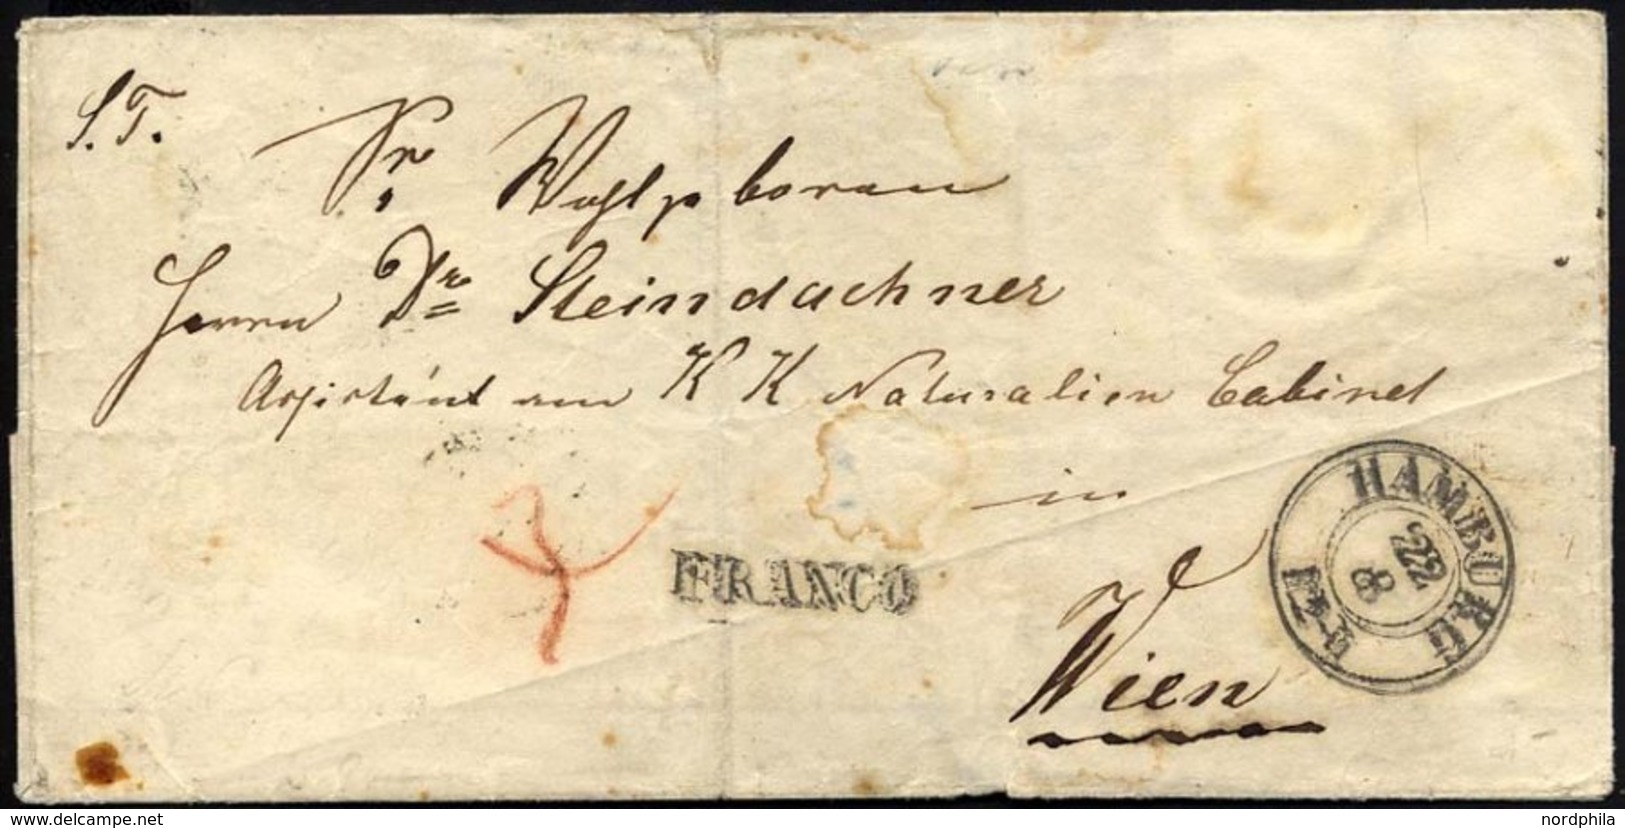 S. T.
Sr Wohlgeboren
Herrn Dr Steindachner
Assistent am K K Naturalien Cabinet
in
FRANCO
HAMBURG
22
8
Wien
www.delcampe.net
nordphila